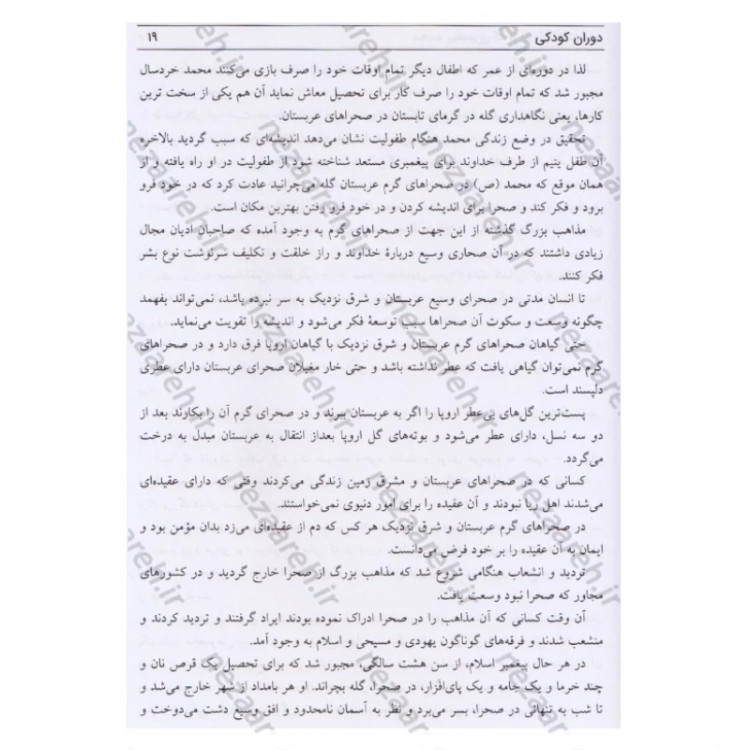 دوران کودکی ۱۹
لذا در دوره‌ای از عمر که اطفال دیگر تمام اوقات خود را صرف بازی می‌کنند محمد خردسال
مجبور شد که تمام اوقات خود را صرف کار برای تحصیل معاش نماید آن هم یکی از سخت ترین
کارها، یعنی نگاهداری گله در گرمای تابستان در صحراهای عربستان.
تحقیق در وضع زندگی محمد هنگام طفولیت نشان می‌دهد اندیشه‌ای که سبب گردید بالاخره
آن طفل یتیم از طرف خداوند برای پیغمبری مستعد شناخته شود از طفولیت در او راه یافته و از
همان موقع که محمد (ص) در صحراهای گرم عربستان گله می‌چرانید عادت کرد که در خود فرو
برود و فکر کند و صحرا برای اندیشه کردن و در خود فرو رفتن بهترین مکان است.
مذاهب بزرگ گذشته از این جهت از صحراهای گرم به وجود آمده که صاحبان ادیان مجال
زیادی داشتند که در آن صحاری وسیع دربارهٔ خداوند و راز خلقت و تکلیف سرنوشت نوع بشر
فکر کنند.
تا انسان مدتی در صحرای وسیع عربستان و شرق نزدیک به سر نبرده باشد، نمی‌تواند بفهمد
چگونه وسعت و سکوت آن صحراها سبب توسعهٔ فکر می‌شود و اندیشه را تقویت می‌نماید.
حتی گیاهان صحراهای گرم عربستان و شرق نزدیک با گیاهان اروپا فرق دارد و در صحراهای
گرم نمی‌توان گیاهی یافت که عطر نداشته باشد و حتی خار مغیلان صحرای عربستان دارای عطری
دلپسند است.
پست‌ترین گل‌های بی‌عطر اروپا را اگر به عربستان ببرند و در صحرای گرم آن را بکارند بعد از
دو سه نسل، دارای عطر می‌شود و بوته‌های گل اروپا بعداز انتقال به عربستان مبدل به درخت
می‌گردد.
کسانی که در صحراهای عربستان و مشرق زمین زندگی می‌کردند وقتی که دارای عقیده‌ای
می‌شدند اهل ریا نبودند و آن عقیده را برای امور دنیوی نمی‌خواستند.
در صحراهای گرم عربستان و شرق نزدیک هر کس که دم از عقیده‌ای می‌زد بدان مؤمن بود و
ایمان به آن عقیده را بر خود فرض می‌دانست.
تردید و انشعاب هنگامی شروع شد که مذاهب بزرگ از صحرا خارج گردید و در کشورهای
مجاور که صحرا نبود وسعت یافت.
آن وقت کسانی که آن مذاهب را در صحرا ادراک نموده بودند ایراد گرفتند و تردید کردند و
منشعب شدند و فرقه‌های گوناگون یهودی و مسیحی و اسلام به وجود آمد.
در هر حال پیغمبر اسلام، از سن هشت سالگی، مجبور شد که برای تحصیل یک قرص نان و
چند خرما و یک جامه و یک پای‌افزار، در صحرا، گله بچراند. او هر بامداد از شهر خارج می‌شد و
تا شب به تنهائی در صحرا، بسر می‌برد و نظر به آسمان نامحدود و افق وسیع دشت می‌دوخت و
nezaareh.ir
nezaareh.ir
nezaareh.ir
nezaareh.ir
nezaareh.ir
nezaareh.ir